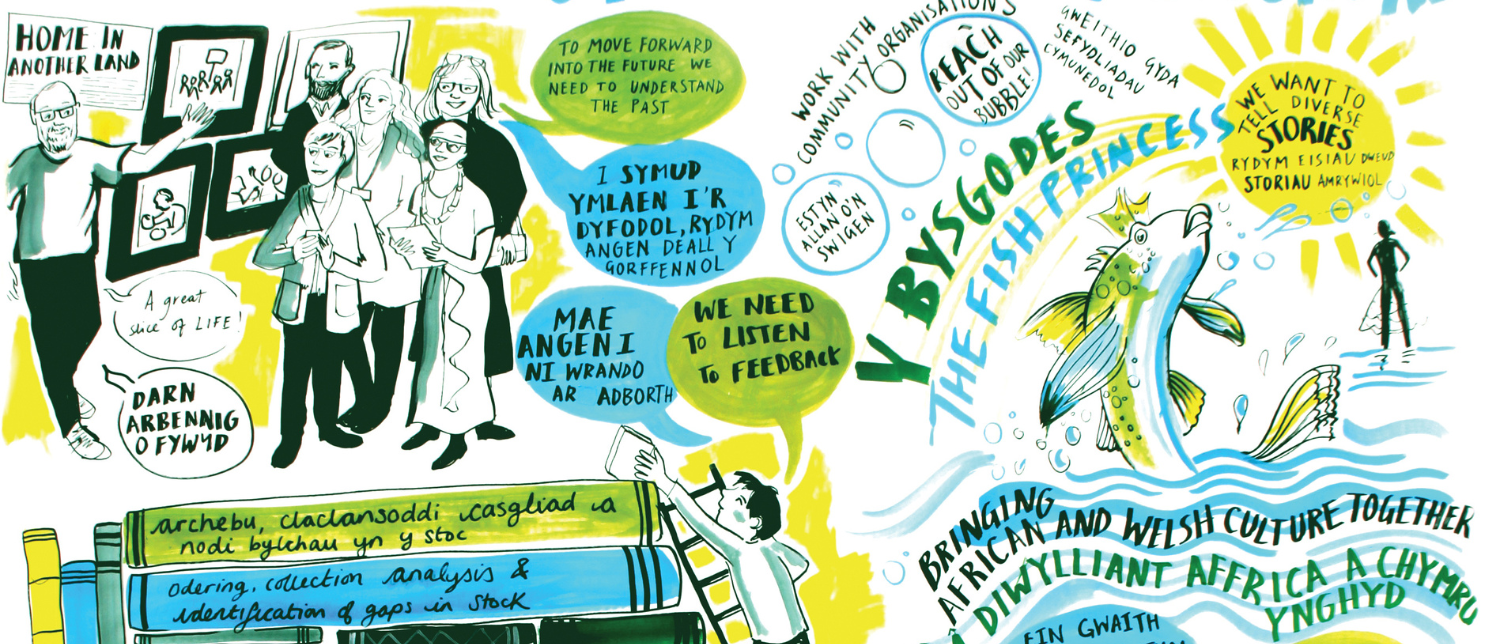 HOME IN
ANOTHER LAND
A great
slice of LIFE!
DARN
ARBENNIG
O FYWYD
TO MOVE FORWARD
INTO THE FUTURE WE
NEED TO UNDERSTAND
THE PAST
I SYMUD
YMLAEN I'R
DYFODOL, RYDYM
ANGEN DEALL Y
GORFFENNOL
MAE
ANGEN I
NI WRANDO
AR ADBORTH
WE NEED
TO LISTEN
TO FEEDBACK
archebu, dadansoddi casgliad a
nodi bylchau yn y stoc
odering, collection analysis &
identification of gaps in stock
WORK WITH
COMMUNITY ORGANISATIONS
REACH
OUT OF OUR
BUBBLE!
GWEITHIO GYDA
SEFYDLIADAU
CYMUNEDOL
ESTYN
ALLAN O'N
SWIGEN
WE WANT TO
TELL DIVERSE
STORIES
RYDYM EISIAU DWEUD
STORIAU AMRYWIOL
Y BYSGODES
THE FISH PRINCESS
BRINGING
AFRICAN AND WELSH CULTURE TOGETHER
DIWYLLIANT AFFRICA A CHYMRU
YNGHYD
EIN GWAITH